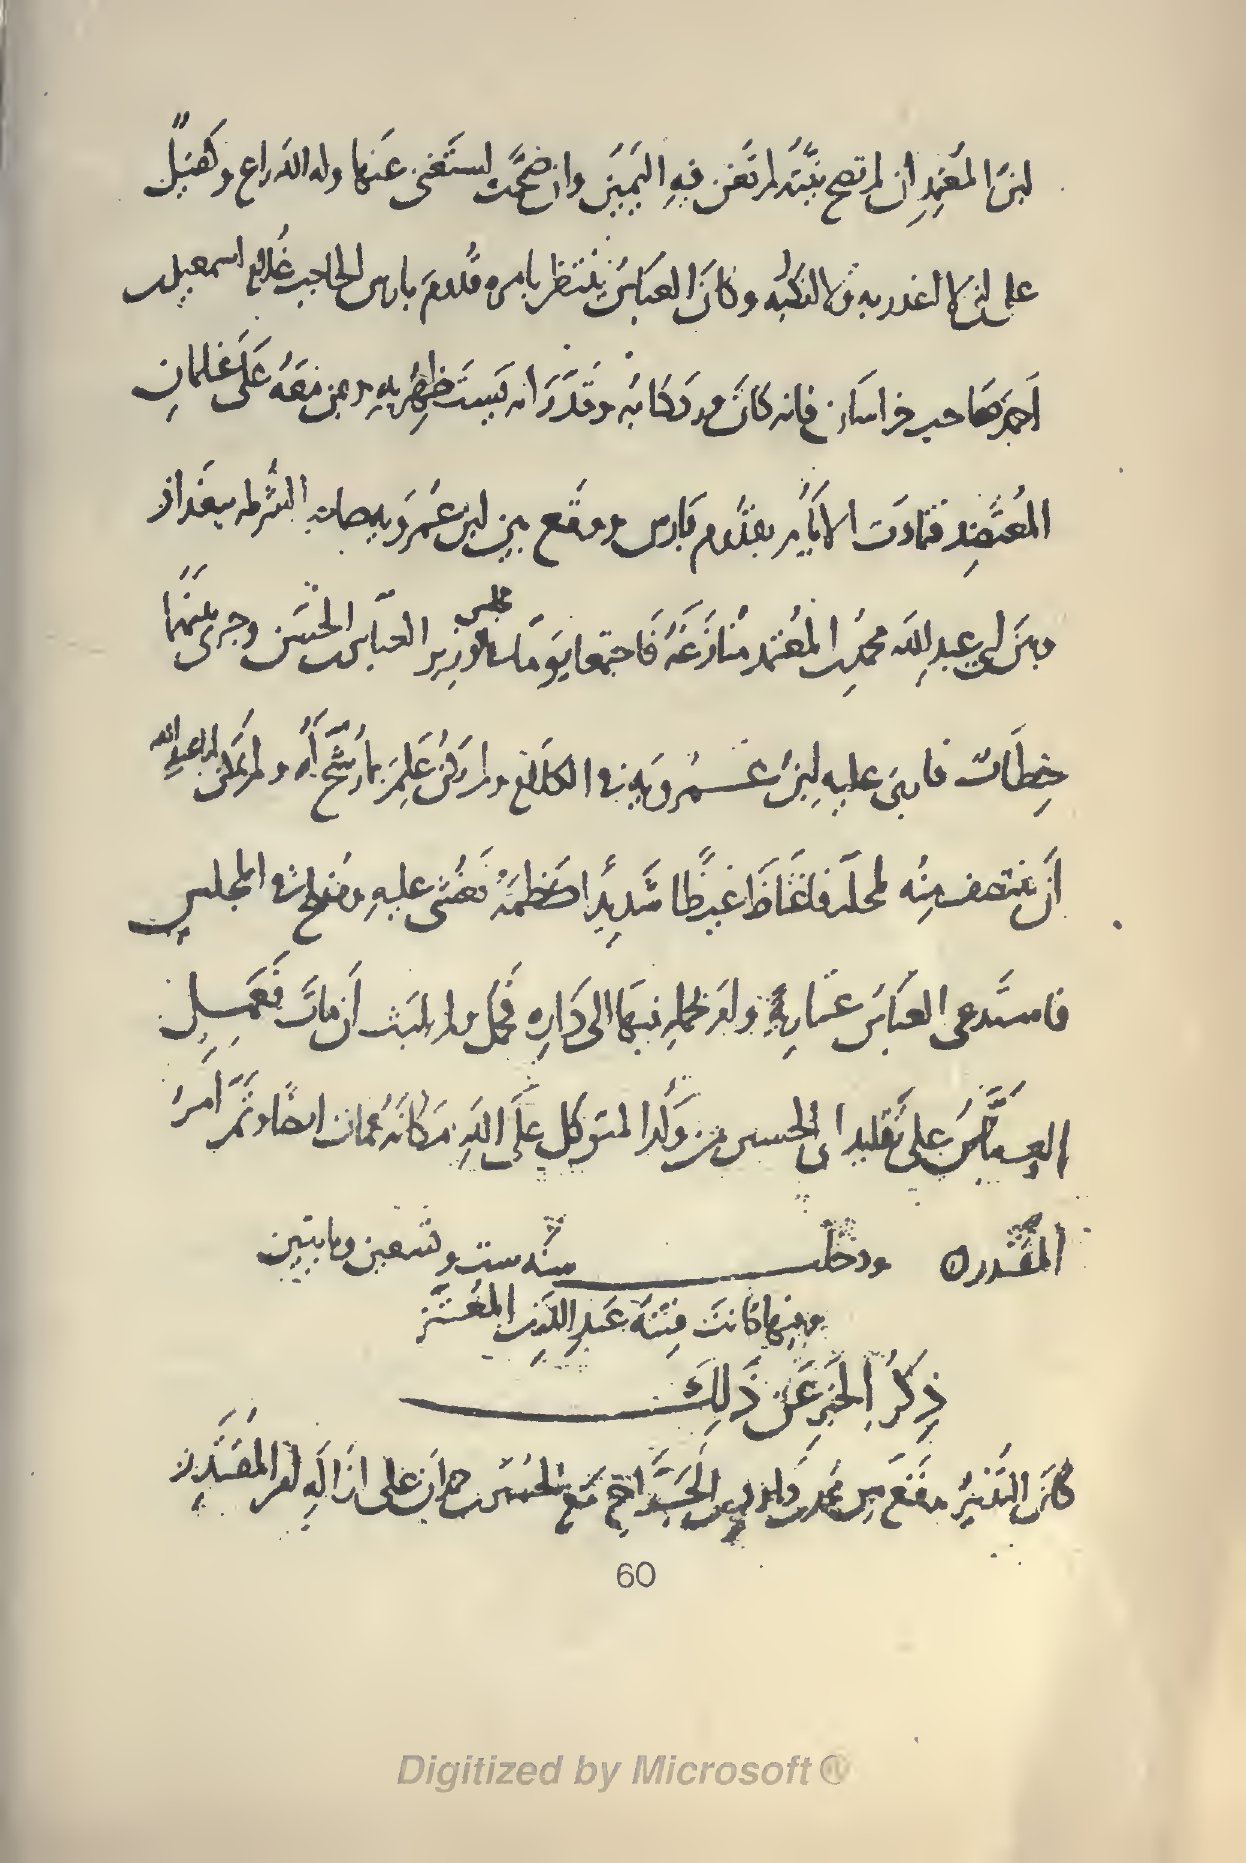 ابن المعتمد ان لم تصح نيته لم تغن فيه اليمين وان صحت استغنى عنها وله الله راع وكفيل
على ان لا اغدر به ولا انكبه وكان العباس ينتظر بامره قدوم بارس الحاجب غلام اسمعيل
احمد صاحب خراسان فانه كان ورد كتابه وقدر انه يستظهر به وبمن معه على غلمان
المعتضد فتمادت الايام بقدوم بارس ووقع بين ابن عمرويه صاحب الشرطه ببغداذ
وبين ابي عبد الله محمد بن المعتمد منازعة فاجتمعا يوما في مجلس الوزير العباس بن الحسن وجرى بينهما
خطاب فاربى عليه ابن عمرويه في الكلام ولم يكن علم بما رشح له ولم يمكن ابا عبد الله
أن ينتصف منه لمحله فاغتاظ غيظا شديدا كظمه فغشى عليه وفلج في المجلس
فاستدعى العباس عمارية وامر بحمله فيها الى داره فحمل ولم يلبث أن مات فعمل
العباس على تقليد ابي الحسين من ولد المتوكل على الله مكانه فمات ايضا وتم امر
المقتدر ه ودخلت سنة ست وتسعين ومايتين
وفيها كانت فتنة عبد الله بن المعتز
ذكر الخبر عن ذلك
كان التدبير وقع من محمد بن داود بن الجراح مع الحسين بن حمدان على ازالة امر المقتدر
60
Digitized by Microsoft ®